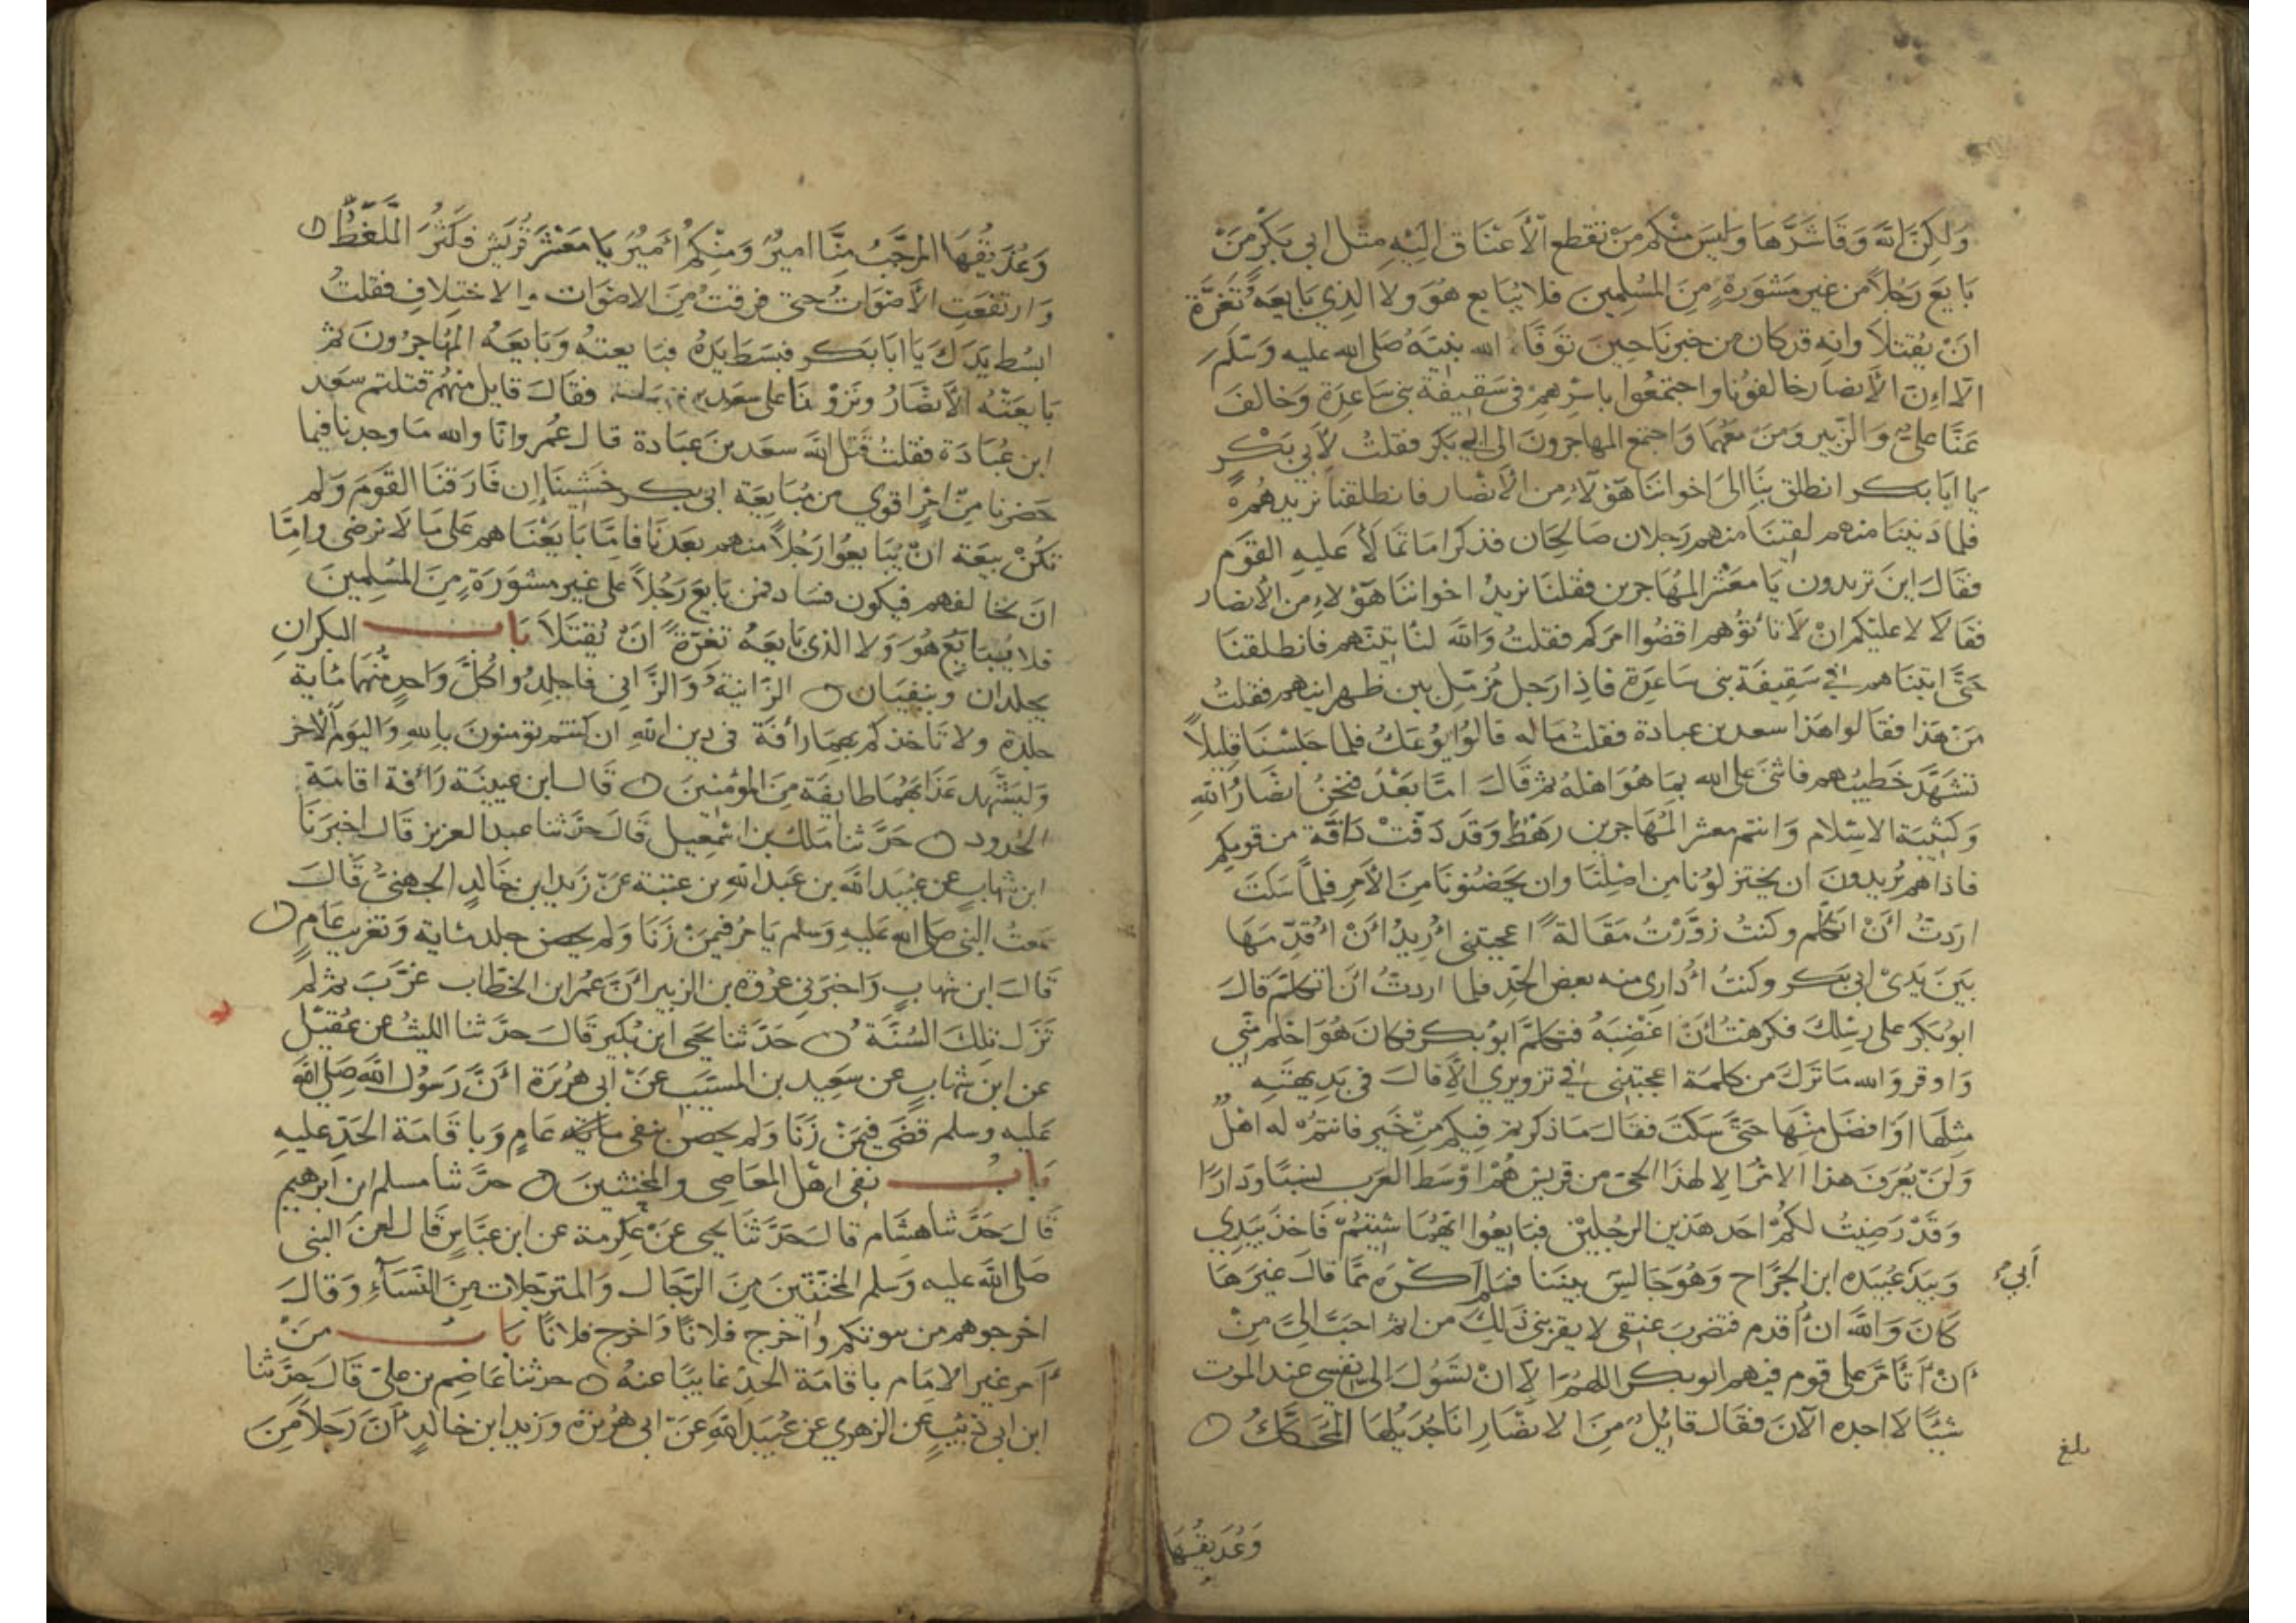 وَلكِنَّ اللَّهَ وَقَا شَرَّهَا وَلَيسَ مِنْكم مَنْ تقطع الأَعْنَاق اليْهِ مِثل ابي بَكْرٍ مَنْ
بَايعَ رَجُلاً من غير مَشْوَرَةٍ مِنَ المسْلِمِينَ فلا يُبَايع هُوَ ولا الذِي بَايعَهُ تَغِرَّةً
انْ يُقتلاَ وانه قد كان من خبرنَا حِينَ تَوَفَّا الله نبيَهُ صَلى الله عليه وَسَلم
الاَّ اِنَّ الأَنصار خالفوُنا واجتمَعُوا باسْرِهِمْ في سَقِيفة بني سَاعِدَة وَخَالفَ
عَنَّا عليٌّ وَالزّبير وَمَنْ مَعَهمَا وَاجتمع المهاجرونَ الى ابي بَكر فقلتُ لأَبي بَكْرٍ
يا ابَا بكر انطلق بنَا الىَ اخواننَا هَؤلاَءِ مِن الأَنصَار فانطلقنا نريدهُمْ
فلما دَنَينَا منهم لقينَا منهم رَجلان صَالحَان فذكرا مَا تمَا لأَ عَليهِ القوَم
فقالَ اينَ تريدون يَا معْشر المُهَاجرين فقلنَا نريدُ اخواننَا هَؤلاءِ من الأَنصار
فقالا لا عليْكم انْ لاَ تأتوُهم اقضُوا امرَكم فقلتُ وَاللَّه لنأتينّهم فانطلقنَا
حَتَّى اتينَاهم في سَقِيفَة بنى سَاعِدَة فاذِا رَجل مُزمّل بين ظهرانيهم فقلتُ
مَنْ هَذا فقالوا هَذا سعد بن عبادة فقلتُ مَا له قالوُا يوُعَكُ فلما جَلسْنَا قليلاً
تشهَّدَ خَطيبُهم فاثنَى على الله بمَا هُوَ اهْلهُ ثم قَالَ امَّا بَعْدُ فنحنُ انصَارُ اللّهِ
وَكتيبَة الاسلام وَانتم معشر المُهَاجرين رَهْطٌ وَقدَ دَفّتْ دَافَّة من قومِكم
فاذا هم يُريدونَ ان يختزلوُنا من اصْلِنَا وان يحضنُونا مِنَ الأَمرِ فلماَّ سَكتَ
اردَتُ أَنْ اتكلم وكنتُ زوَّرْتُ مَقَالةً اعجبتني أُرِيدُ أَنْ أُقدِّمَهَا
بَينَ يَدَيْ ابي بَكر وكنتُ أُدَارِي منه بعض الحَدِّ فلما اردتُ أَنْ اتكلمَ قالَ
ابوُ بكر على رسْلِكَ فكرهتُ أنْ اغضِبَهُ فتكلمَ ابوُ بكر فكانَ هُوَ احْلم مِنّي
وَاوقر وَالله مَا تَرَكَ من كلمة اعجبتنى في تزويري الاَّ قالَ في بَدِيهتَهِ
مثلهَا اوَ افضَل مِنْهَا حَتَّى سَكتَ فقالَ مَا ذكرتم فيكم مِنْ خَيرٍ فانتم لهُ اهْلٌ
وَلَنْ يُعْرَفَ هذا الامْر الاّ لهذا الحيّ من قريش هُمْ اوْسَط العَرب نسَبًا ودَارًا
وَقدْ رَضِيتُ لكمْ احَد هَذين الرجليْن فبَايعُوا ايّهُمَا شِيتُمْ فَاخَذَ بيَدِي
وَبيَدِ عُبَيدَه ابن الجرَّاح وَهُوَ جَالسَ بيننا فلم اكره ممَّا قالَ غيرَهَا
أَبِي
كَانَ وَاللَّه ان أُقدم فتضربَ عنقي لا يقرّبني ذَلِكَ من اثم احبَّ اليَّ مِنْ
أَنْ أَتأَمَّرَ على قوم فيهم ابو بكر اللهم الاّ انْ تسَوُلَ إلىّ نفسِي عند الموت
شيئًا لا اجده الآنَ فقال قايلٌ مِنَ الانصَارِ انَا جُذَيلُهَا المُحَكَّكُ
بلغ
وَعُذيقُهَا
وَعُذَيْقُهَا المرَجَّبُ مِنَّا اميرٌ وَمنْكمُ أَميرٌ يَا مَعْشَرَ قُرَيش فكَثُرَ اللَّغَطُ
وَارتفعَتِ الأَصْوَاتُ حتى فرقتُ مِنَ الاصْوَات والاختِلافِ فقلتُ
ابسُط يدَكَ يَا ابَا بَكر فبسَطَ يَدَهُ فبَايعتهُ وَبَايعَهُ المُهَاجرُونَ ثم
بَايعَتْهُ الأَنصَارُ ونزَوْنَا على سَعد بن عبادة فقالَ قايل منهُم قتلتم سَعد
ابن عُبَادَة فقلتُ قتل اللَّه سعد بن عبَادة قال عُمر وانّا والله مَا وجدنا فيما
حَضرنا مِنْ امْرٍ اقوي من مُبَايعَة ابي بكر خشِينَا إن فَارَقنَا القوَم وَلم
تكنْ بيعَة انْ يُبَايعوُا رَجُلاً منهم بَعدَنَا فامَّا بَايَعْنَاهم على مَا لاَ نرضى وامَّا
ان نخالفهم فيكون فسَاد فمن بايعَ رَجُلاً على غير مشوَرَةٍ مِنَ المُسْلِمينَ
فلا يُبَايَعُ هُوَ وَلا الذي بَايعَهُ تغرّةً انْ يُقتَلاَ بَاب البكرَانِ
يجلدان وينفيَان الزانية وَالزَّانِي فاجلِدُوا كُلَّ وَاحِدٍ منهمَا مئاية
جلدة ولا تَاخذكم بهمَا رأفة في دين اللهِ ان كنتم تومنونَ باللهِ وَاليَومِ الآخر
وَليَشْهَد عَذابَهُمَا طايفة مِنَ المؤمنين قالَ ابن عيينَة رَافة اقامَة
الحُدود حَدَّثنا مَلك بن اسْمعيل قَالَ حَدَّثنا عبد العزيز قَالَ اخبرَنَا
ابن شهاب عن عُبيَد اللَّه بن عَبد اللهِ بن عتبة عَنْ زَيد ابن خَالدٍ الجهنيُّ قَالَ
سَمعتُ النبي صَلى الله عَليهِ وَسَلم يَامرُ فيمَنْ زَنَا وَلم يحصن جلد مئاية وَتغريبَ عَامٍ
قَالَ ابن شهابٍ وَاخبَرَنِي عرُوَة بن الزبير أَنَّ عُمر ابن الخطّاب غرَّبَ ثم لَم
تَزَل تلكَ السُّنَّة حَدَّثنا يحيَى ابن بُكير قَالَ حَدَّثنا الليثُ عَن عُقيْلٍ
عن ابن شهابٍ عن سَعِيد بن المسَيّب عَنْ ابي هُرَيرَة أَنَّ رَسوُلَ اللَّه صَلى الله
عَليه وسلم قضَى فيمَنْ زَنَا وَلم يحصن بنفى عَامٍ وَباقَامَة الحَدّ عليهِ
بَابُ نفى اهْل المعَاصِي والمخنثينَ حَدَّثنا مسلم ابن ابرهيم
قَالَ حَدَّثنا هشَام قالَ حَدَّثنَا يحيى عَنْ عكرمة عن ابن عبَّاسٍ قَالَ لعنَ النبي
صَلى اللَّه عليه وَسَلم المخنّثينَ مِنَ الرّجَال وَالمترَجّلات مِنَ النّسَآءِ وَقالَ
اخرجوهم من بيوتكم وَاخرج فلانًا وَاخرج فلانًا بَابُ مَنْ
أَمر غير الامَام باقامَة الحَدّ غايبًا عنهُ حدثنا عَاصِم بن عليّ قَالَ حَدَّثنا
ابن ابي ذئبٍ عن الزهري عن عُبَيد اللَّهِ عَنْ ابي هُرَيْرَة وَزَيد ابن خالدٍ أَنَّ رَجلاً مِنَ